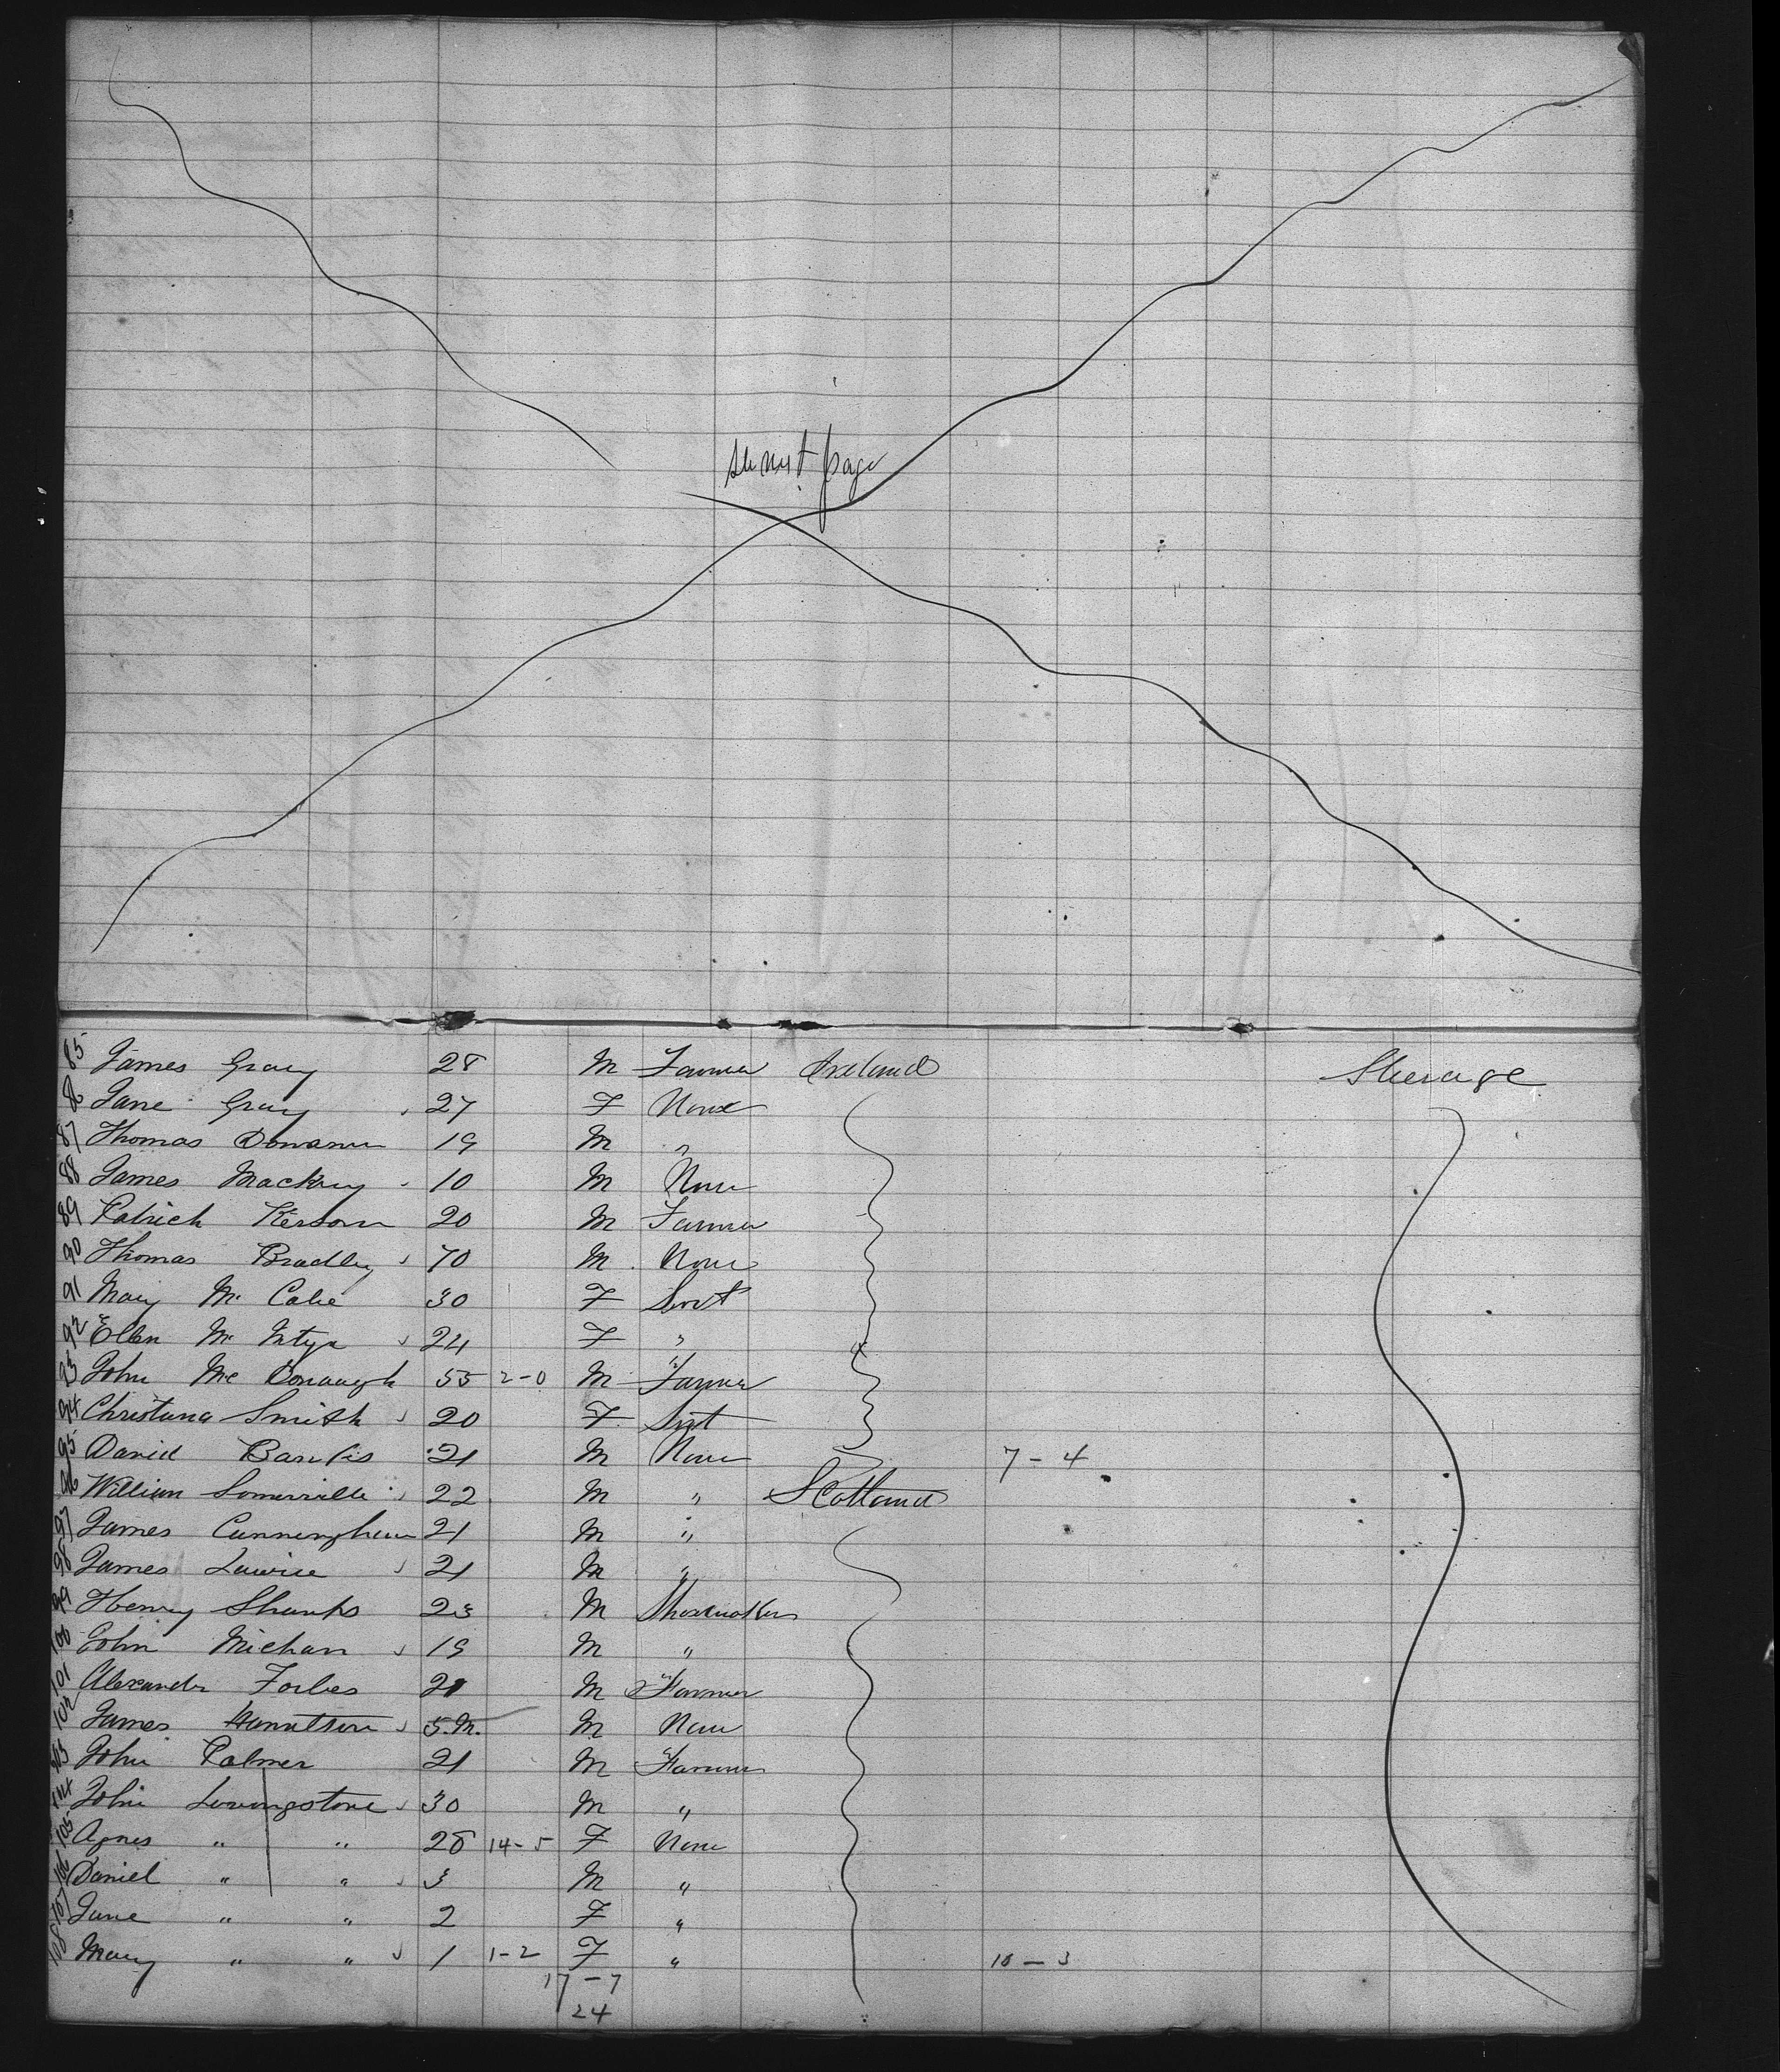 see next page
85 James Gray 28 M Farmer Ireland Steerage
86 Jane Gray 27 F None
87 Thomas 19 M "
88 James 10 M None
89 Patrick 20 M Farmer
90 Thomas Bradley 70 M None
91 Mary Mc Cabe 30 F Servt
92 Ellen Mc 24 F "
93 John Mc Donaugh 55 2-0 M Farmer
94 Christana Smith 20 F Servt
95 David 21 M None 7-4
96 William Somerville 22 M " Scotland
97 James Cunningham 21 M "
98 James 21 M "
99 Henry Shanks 23 M Shoemaker
100 John Michan 19 M "
101 Alexander Forbes 21 M Farmer
102 James 5.M. M None
103 John Palmer 21 M Farmer
104 John Livingstone 30 M "
105 Agnes " " 28 14-5 F None
106 Daniel " " 3 M "
107 Jane " " 2 F "
108 Mary " " 1 1-2 F " 10-3
17-7
24